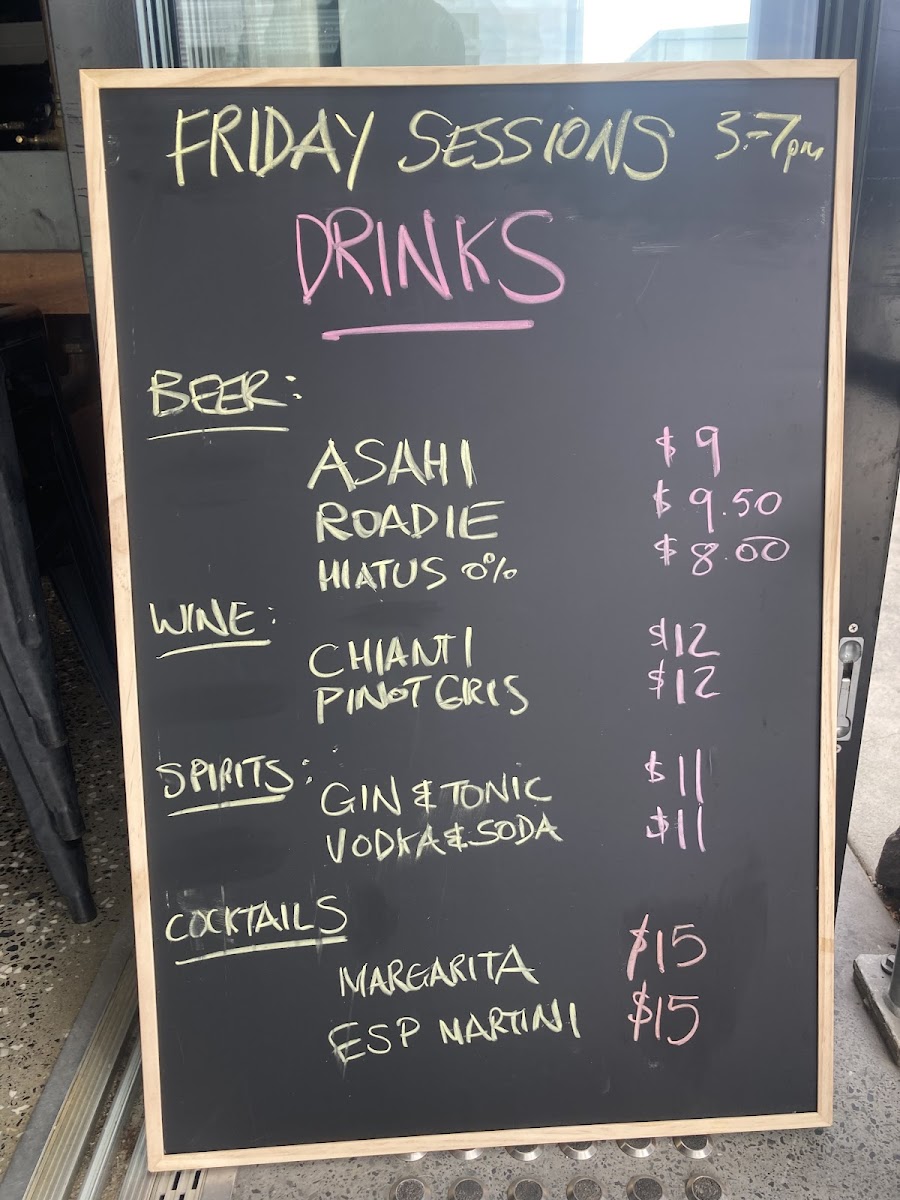 FRIDAY SESSIONS 3-7pm
DRINKS
BEER:
ASAHI $9
ROADIE $9.50
HIATUS 0% $8.00
WINE:
CHIANTI $12
PINOT GRIS $12
SPIRITS:
GIN & TONIC $11
VODKA & SODA $11
COCKTAILS
MARGARITA $15
ESP MARTINI $15